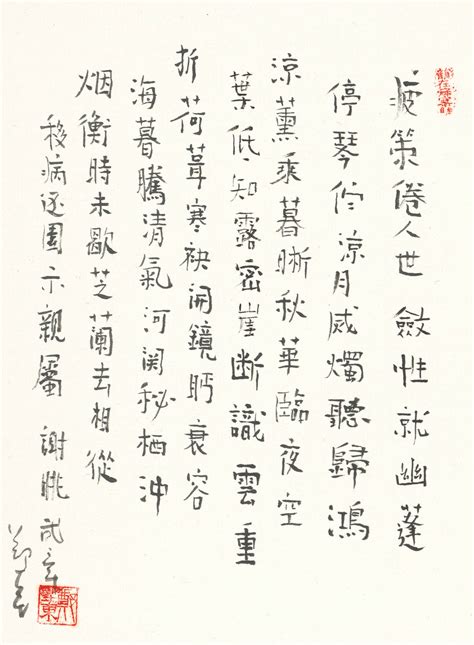 疲策倦人世 斂性就幽蓬
停琴佇涼月烕燭聽歸鴻
涼薰乘暮晰秋華臨夜空
葉低知露密崖断識雲重
折荷葺寒袂開鏡眄衰容
海暮騰清氣河関秘栖沖
烟衡時未歇芝蘭去相從
移病还園示親屬 謝朓